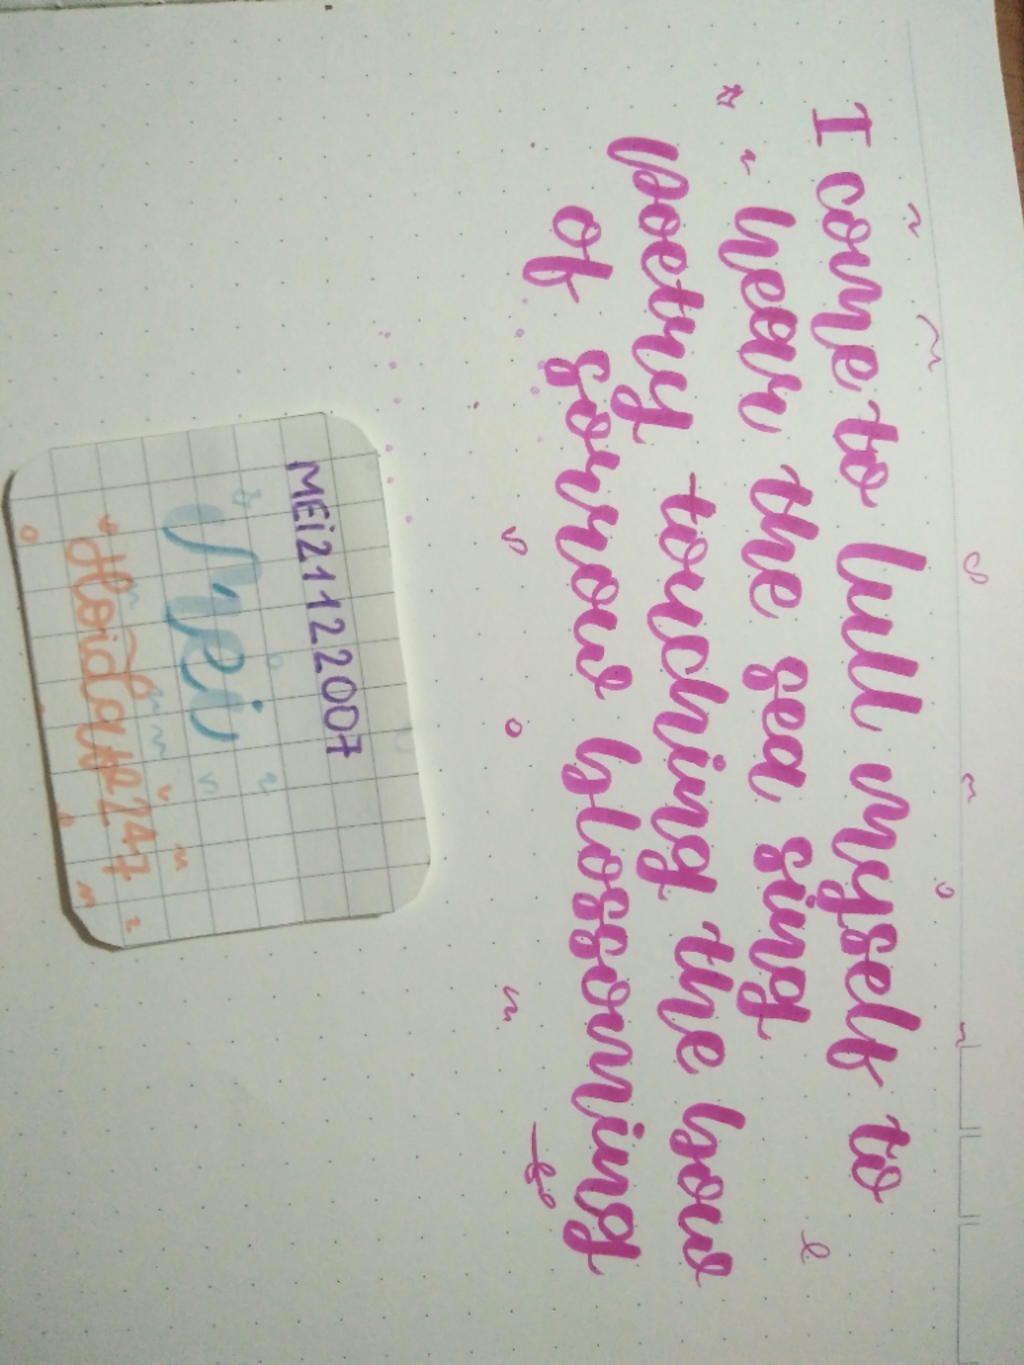 I come to lull myself to
hear the sea sing
poetry touching the bow
of sorrow blossoming
MEi21122007
Mei